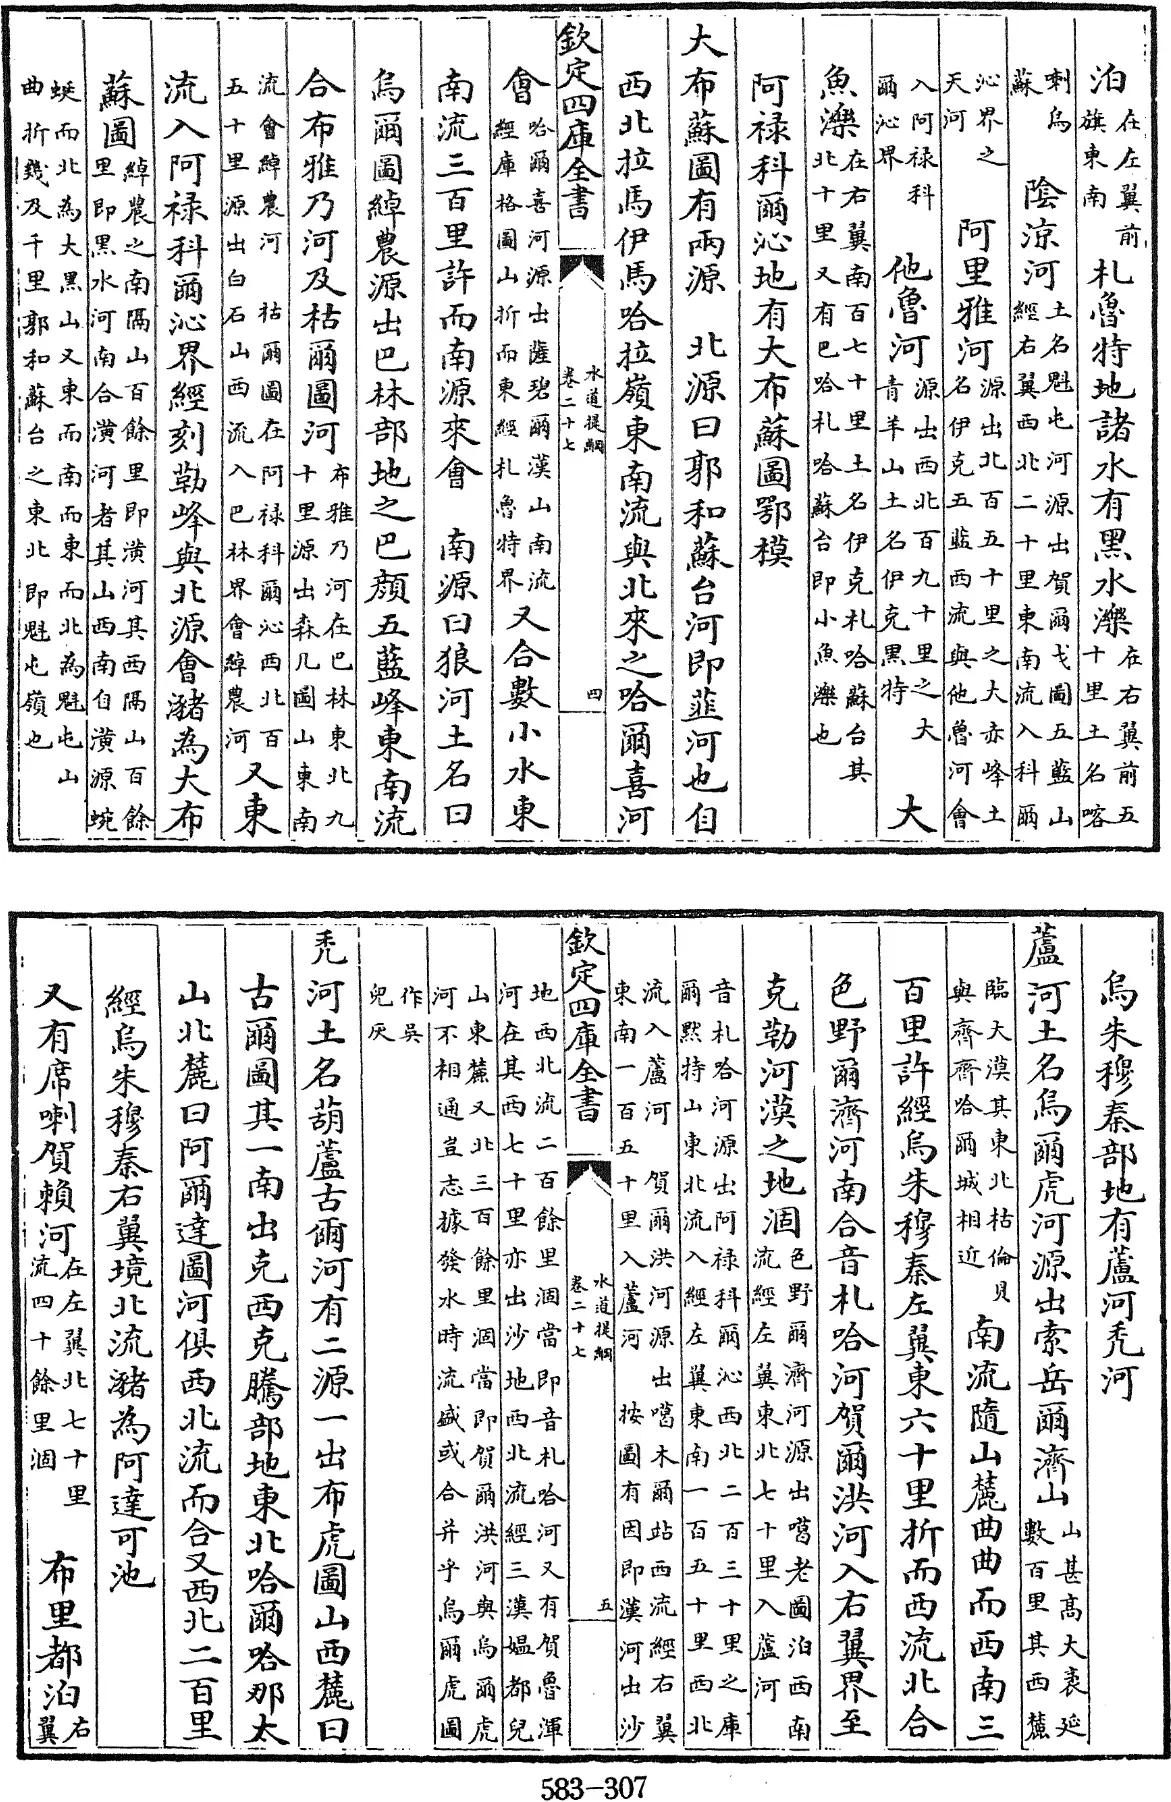 泊在左翼前旗東南札魯特地諸水有黑水濼在右翼前五十里土名喀
喇烏蘇陰涼河土名魁屯河源出賀爾戈圖五藍山經右翼西北二十里東南流入科爾
沁界之天河阿里雅河源出北百五十里之大赤峰土名伊克五藍西流與他魯河會
入阿禄科爾沁界他魯河源出西北百九十里之大青羊山土名伊克黑特大
魚濼在右翼南百七十里土名伊克札哈蘇台其北十里又有巴哈札哈蘇台即小魚濼也
阿禄科爾沁地有大布蘇圖鄂模
大布蘇圖有兩源 北源曰郭和蘇台河即韮河也自
西北拉馬伊馬哈拉嶺東南流與北來之哈爾喜河
欽定四庫全書 水道提綱 卷二十七 四
會哈爾喜河源出薩碧爾漢山南流經庫格圖山折而東經札魯特界又合數小水東
南流三百里許而南源來會 南源曰狼河土名曰
烏爾圖綽農源出巴林部地之巴顔五藍峰東南流
合布雅乃河及枯爾圖河布雅乃河在巴林東北九十里源出森几圖山東南
流會綽農河 枯爾圖在阿禄科爾沁西北百五十里源出白石山西流入巴林界會綽農河又東
流入阿禄科爾沁界經刻勒峰與北源會瀦為大布
蘇圖綽農之南隔山百餘里即潢河其西隔山百餘里即黑水河南合潢河者其山西南自潢源蜿
蜒而北為大黑山又東而南而東而北為魁屯山曲折幾及千里郭和蘇台之東北即魁屯嶺也
烏朱穆秦部地有蘆河秃河
蘆河土名烏爾虎河源出索岳爾濟山山甚高大袤延數百里其西麓
臨大漠其東北枯倫貝與齊齊哈爾城相近南流隨山麓曲曲而西南三
百里許經烏朱穆秦左翼東六十里折而西流北合
色野爾濟河南合音札哈河賀爾洪河入右翼界至
克勒河漠之地涸色野爾濟河源出噶老圖泊西南流經左翼東北七十里入蘆河
音札哈河源出阿禄科爾沁西北二百三十里之庫爾黙特山東北流入經左翼東南一百五十里西北
流入蘆河 賀爾洪河源出噶木爾站西流經右翼東南一百五十里入蘆河 按圖有因即漠河出沙
欽定四庫全書 水道提綱 卷二十七 五
地西北流二百餘里涸當即音札哈河又有賀魯渾河在其西七十里亦出沙地西北流經三漠媪都兒
山東麓又北三百餘里涸當即賀爾洪河與烏爾虎河不相通豈志據發水時流盛或合并乎烏爾虎圖
作吳兒灰
秃河土名葫蘆古爾河有二源一出布虎圖山西麓曰
古爾圖其一南出克西克騰部地東北哈爾哈那太
山北麓曰阿爾達圖河俱西北流而合又西北二百里
經烏朱穆秦右翼境北流瀦為阿達可池
又有席喇賀賴河在左翼北七十里流四十餘里涸 布里都泊右翼
583-307